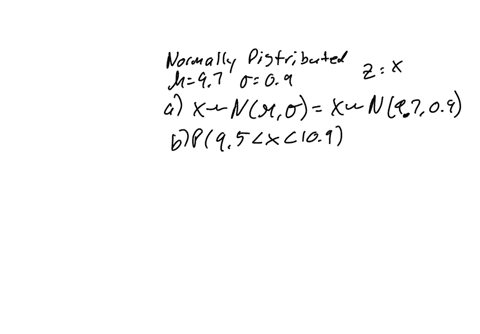 Normally Distributed
μ=9.7 σ=0.9
z=x
a) X~N(μ,σ) = X~N(9.7,0.9)
b) P(9.5<x<10.9)